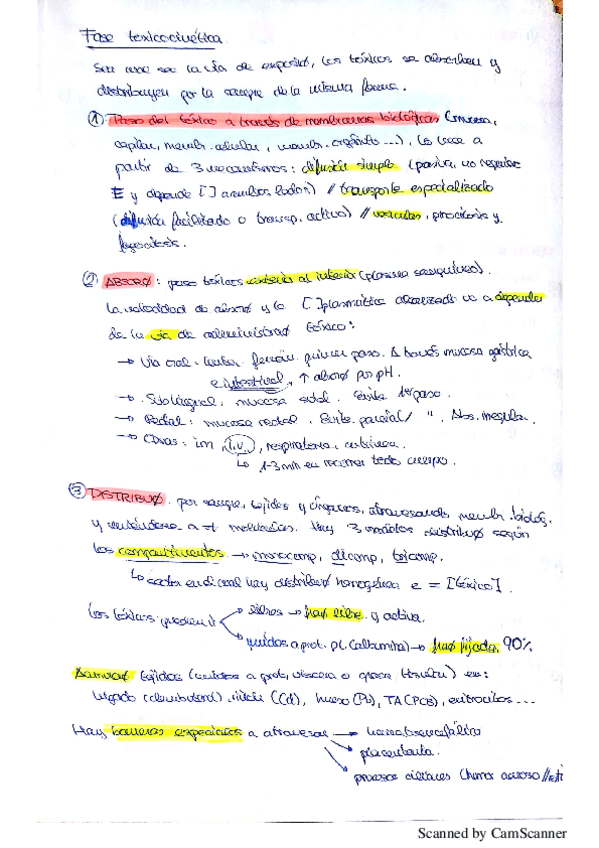 Fase toxicocinética
Sea cual sea la vía de exposición, los tóxicos se absorben y
distribuyen por la sangre de la misma forma.
① Paso del tóxico a través de membranas biológicas (mucosa,
capilar, membr. celular, membr. orgánulo ...), lo hace a
partir de 3 mecanismos: difusión simple (pasiva, no requiere
E y depende [ ] ambos lados) // transporte especializado
(difusión facilitada o transp. activo) // vesículas, pinocitosis y
fagocitosis.
② ABSORØ: paso tóxicos exterior al interior (plasma sanguíneo).
La velocidad de absorØ y la [ ] plasmática alcanzada va a depender
de la vía de administraØ tóxico:
→ Vía oral. primer paso. A través mucosa gástrica
e intestinal, ↑ absorØ por pH.
→ Sublingual: mucosa Evita 1er paso.
→ Rectal: mucosa rectal. Evita parcial/ " . Abs. irregular.
→ Otras: im, i.v., respiratoria, cutánea.
↳ 1-3 min en recorrer todo cuerpo.
③ DISTRIBUØ. por sangre, tejidos y órganos, atravesando membr. biológ.
y uniéndose a ≠ moléculas. Hay 3 modelos distribuØ según
los compartimentos → monocomp, bicomp, tricomp.
↳ sector en el cual hay distribuØ homogénea e = [tóxico].
Los tóxicos pueden ir libres → fraØ libre y activa.
unidos a prot. pl. (albúmina) → fraØ fijada. 90%
tejidos (unidos a prot, víscera o grasa en:
hígado riñón (Cd), hueso (Pb), TA (PCB), eritrocitos ...
Hay barreras especiales a atravesar → hematoencefálica
→ placentaria.
→ procesos ciliares (humor acuoso //
Scanned by CamScanner